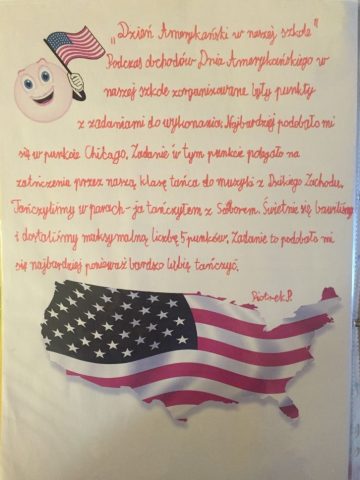 „Dzień Amerykański w naszej szkole"
Podczas obchodów Dnia Amerykańskiego w
naszej szkole zorganizowane były punkty
z zadaniami do wykonania. Najbardziej podobało mi
się w punkcie Chicago. Zadanie w tym punkcie polegało na
zatańczeniu przez naszą klasę tańca do muzyki z Dzikiego Zachodu.
Tańczyliśmy w parach - ja tańczyłem z Świetnie się bawiliśmy
i dostaliśmy maksymalną liczbę 5 punktów. Zadanie to podobało mi
się najbardziej ponieważ bardzo lubię tańczyć.
Piotrek P.